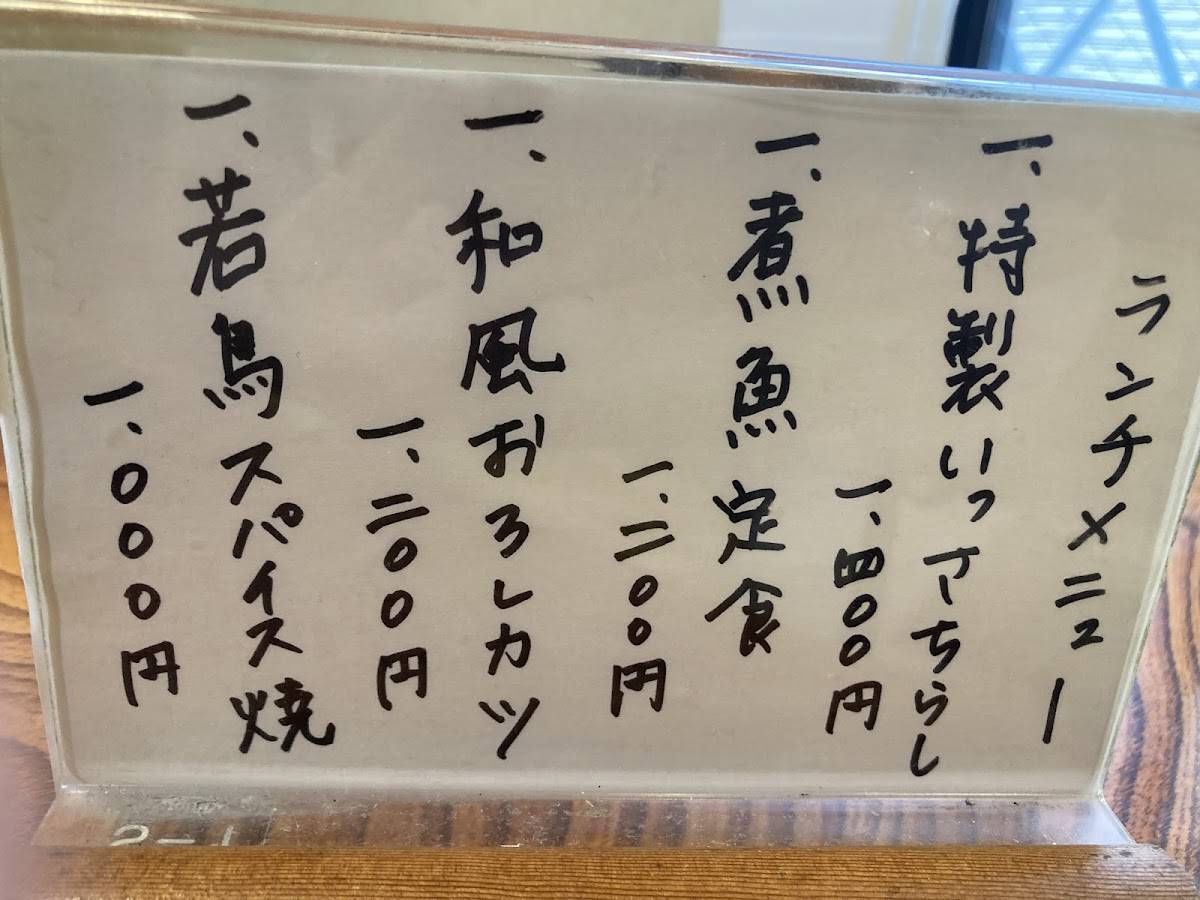 ランチメニュー
一、特製いっさちらし
一、四〇〇円
一、煮魚定食
一、二〇〇円
一、和風おろしカツ
一、二〇〇円
一、若鳥スパイス焼
一、〇〇〇円
2-1